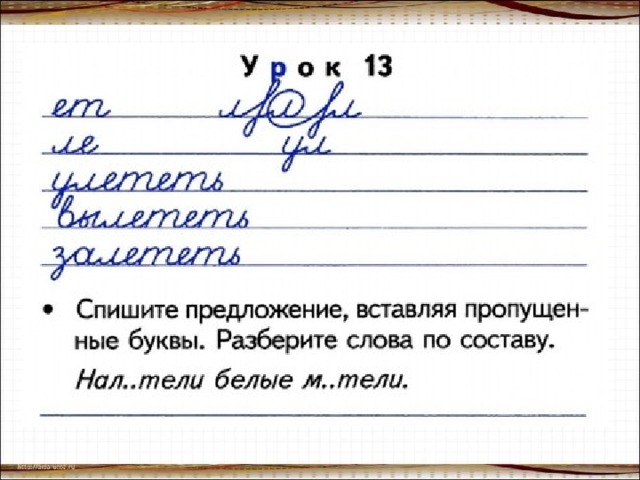 Урок 13
ет
ле ул
улететь
вылететь
залететь
• Спишите предложение, вставляя пропущен-
ные буквы. Разберите слова по составу.
Нал..тели белые м..тели.